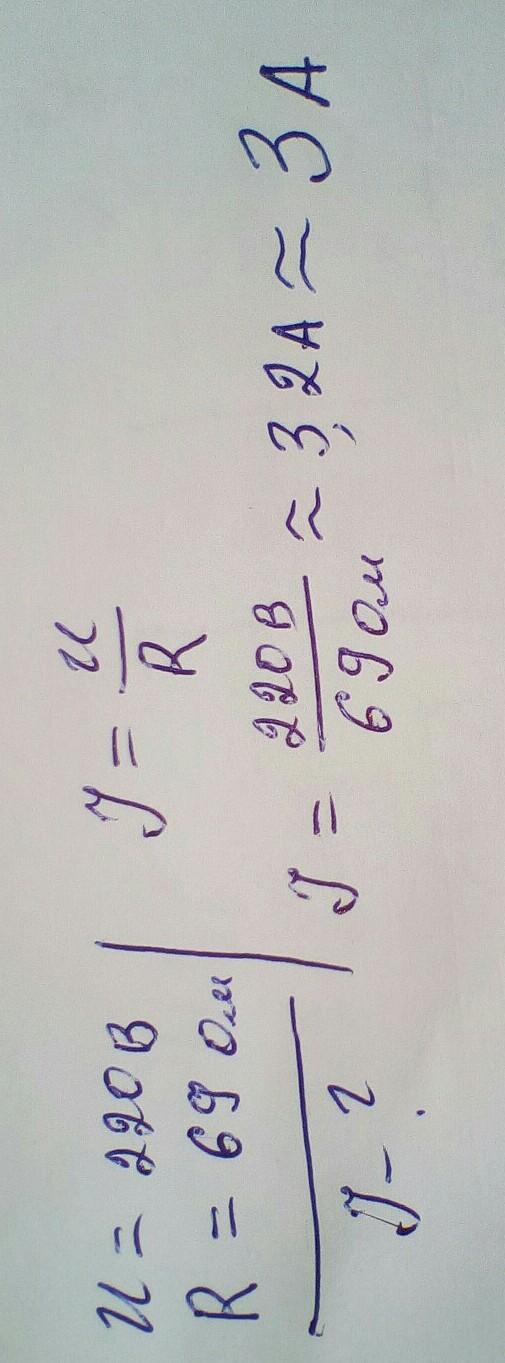 U = 220 В
R = 69 Ом
J - ?
J = U/R
J = 220 В/69 Ом ≈ 3,2 А ≈ 3 А